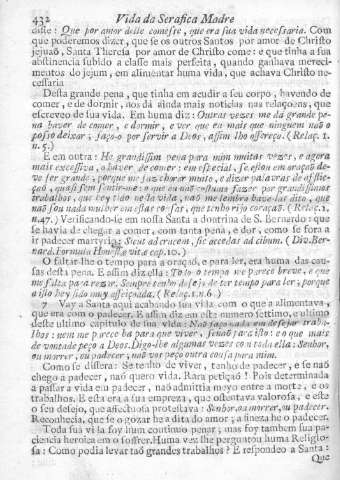 432 Vida da Serafica Madre
disse: Que por amor delle comesse, que era sua vida necessaria. Com
que poderemos dizer, que se os outros Santos por amor de Christo
jejuaõ, Santa Theresa por amor de Christo come: e que tinha a sua
abstinencia subido a classe mais perfeita, quando ganhava mereci-
mentos do jejum, em alimentar huma vida, que achava Christo ne-
cessaria
Desta grande pena, que tinha em acudir a seu corpo, havendo de
comer, e de dormir, nos dá ainda mais noticias nas relaçoens, que
escreveo de sua vida. Em huma diz: Outras vezes me dá grande pe-
na haver de comer, e dormir, e ver que eu mais que ninguem naõ o
posso deixar; faço-o por servir a Deos, assim lho offereço. (Relaç. 1.
n. 5.)
E em outra: He grandissim pena para mim muitas vezes, e agora
mais excessiva, o haver de comer: em special, se estou em oraçaõ de-
ve ser grande, porque me faz chorar muito, e dizer palavras de afflic-
çaõ, quasi sem sentir-me: o que eu naõ costumo fazer por grandissimos
trabalhos, que hey tido nesta vida, naõ me lembro have-las dito, que
naõ sou nada mulher em estas cousas, que tenho rijo coraçaõ. (Relaç. 1.
n. 47.) Verificando-se em nossa Santa a doutrina de S. Bernardo: que
se havia de chegar a comer, com tanta pena, e dor, como se fora a
ir padecer martyrio: Sicut ad crucem, sic accedas ad cibum. (Div. Ber-
nard. Formula Honestæ vitæ cap. 10.)
O faltar-lhe o tempo para a oraçaõ, e para ler, era huma das cau-
sas desta pena. E assim diz ella: Todo o tempo me parece breve, e que
me falta para rezar. Sempre tenho desejo de ter tempo para ler, porque
a isto hey sido muy affeiçoada. (Relaç. 1. n. 6.)
7 Vay a Santa aqui acabando sua vida com o que a alimentava,
que era com o padecer. E assim diz em este numero settimo, e ultimo
deste ultimo capitulo de sua vida: Naõ faço nada em desejar traba-
lhos: nem me parece ha para que viver, senaõ para isto: e o que mais
de vontade peço a Deos. Digo-lhe algumas vezes com toda ella: Senhor,
ou morrer, ou padecer; naõ vos peço outra cousa para mim.
Como se dissera: Se tenho de viver, tenho de padecer, e se naõ
chego a padecer, naõ quero vida. Rara petiçaõ! Pois determinada
a passar a vida em padecer, naõ admittia meyo entre a morte, e os
trabalhos. E esta era a sua empreza, que ostentava valorosa, e este
o seu desejo, que affectuosa protestava: Senhor, ou morrer, ou padecer.
Reconhecia, que se o gozar he a dita do amor; a fineza he o padecer.
Toda sua vida foy hum continuo penar; mas foy tambem sua pa-
ciencia heroica em o soffrer. Huma vez lhe perguntou huma Religio-
sa: Como podia levar taõ grandes trabalhos? E respondeo a Santa:
Que